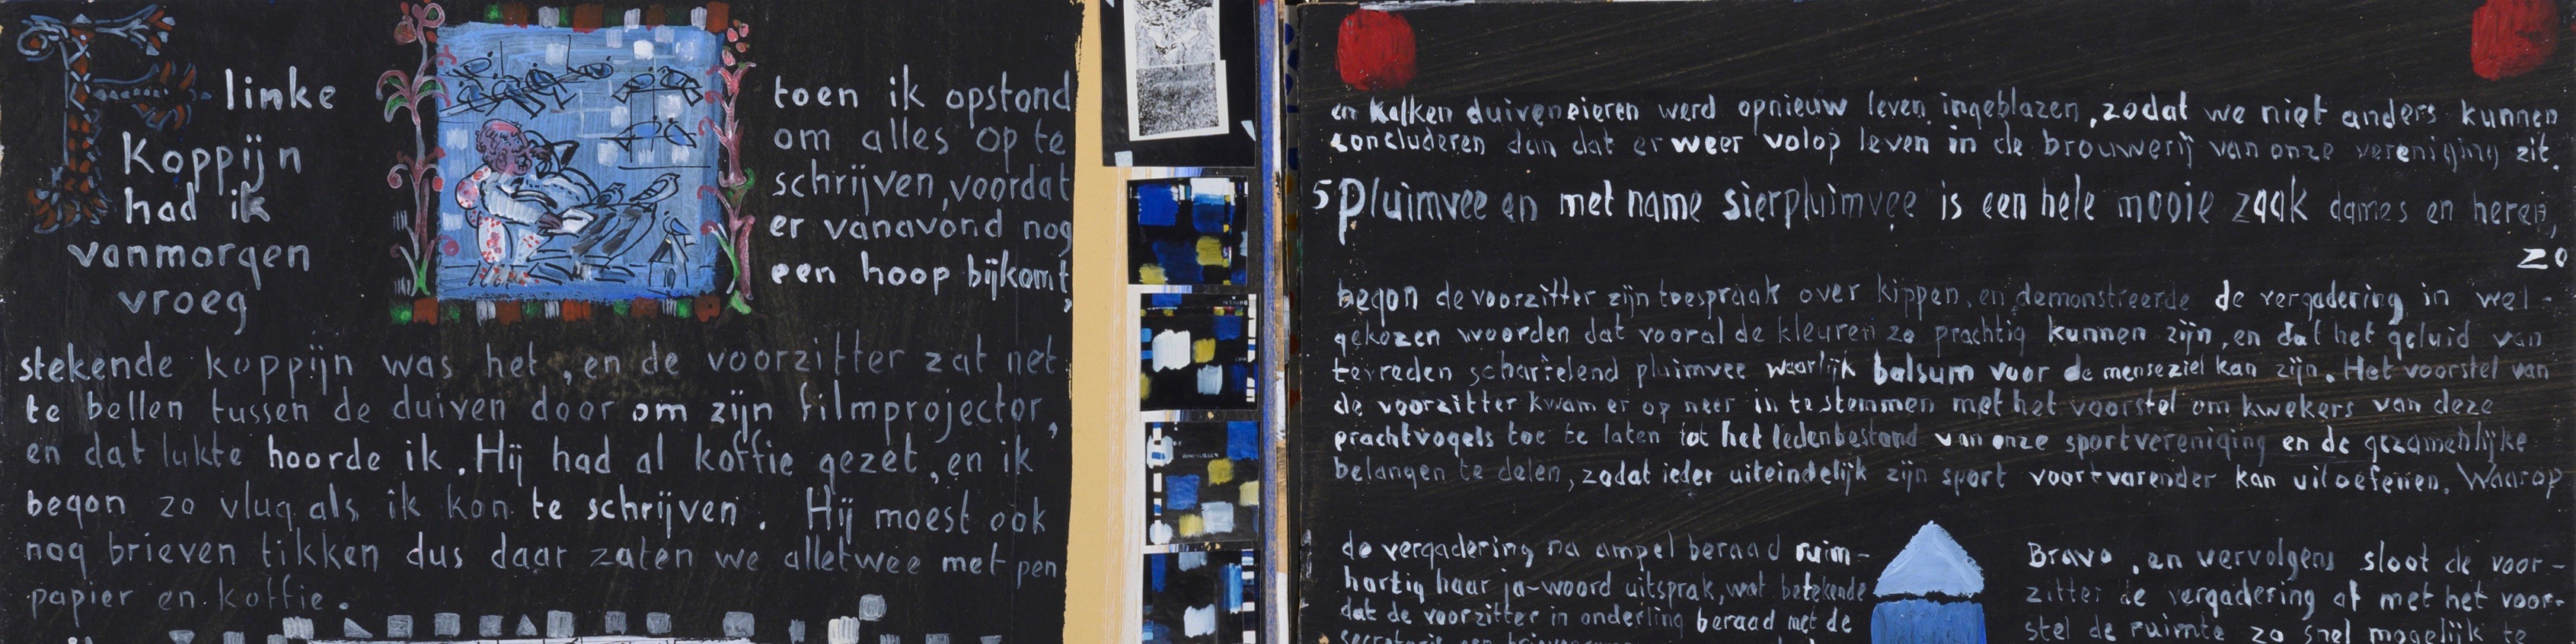 Flinke
Koppijn
had ik
vanmorgen
vroeg
toen ik opstond
om alles op te
schrijven, voordat
er vanavond nog
een hoop bijkomt,
stekende koppijn was het, en de voorzitter zat net
te bellen tussen de duiven door om zijn filmprojector,
en dat lukte hoorde ik. Hij had al koffie gezet, en ik
begon zo vlug als ik kon te schrijven. Hij moest ook
nog brieven tikken dus daar zaten we alletwee met pen
papier en koffie.
en kalken duiveneieren werd opnieuw leven ingeblazen, zodat we niet anders kunnen
concluderen dan dat er weer volop leven in de brouwerij van onze vereniging zit.
5 Pluimvee en met name sierpluimvee is een hele mooie zaak dames en heren,
zo
begon de voorzitter zijn toespraak over kippen, en demonstreerde de vergadering in wel-
gekozen woorden dat vooral de kleuren zo prachtig kunnen zijn, en dat het geluid van
tevreden scharrelend pluimvee waarlijk balsum voor de menseziel kan zijn. Het voorstel van
de voorzitter kwam er op neer in te stemmen met het voorstel om kwekers van deze
prachtvogels toe te laten tot het ledenbestand van onze sportvereniging en de gezamenlijke
belangen te delen, zodat ieder uiteindelijk zijn sport voortvarender kan uitoefenen. Waarop
de vergadering na ampel beraad ruim-
hartig haar ja-woord uitsprak, wat betekende
dat de voorzitter in onderling beraad met de
Bravo, en vervolgens sloot de voor-
zitter de vergadering af met het voor-
stel de ruimte zo snel mogelijk te